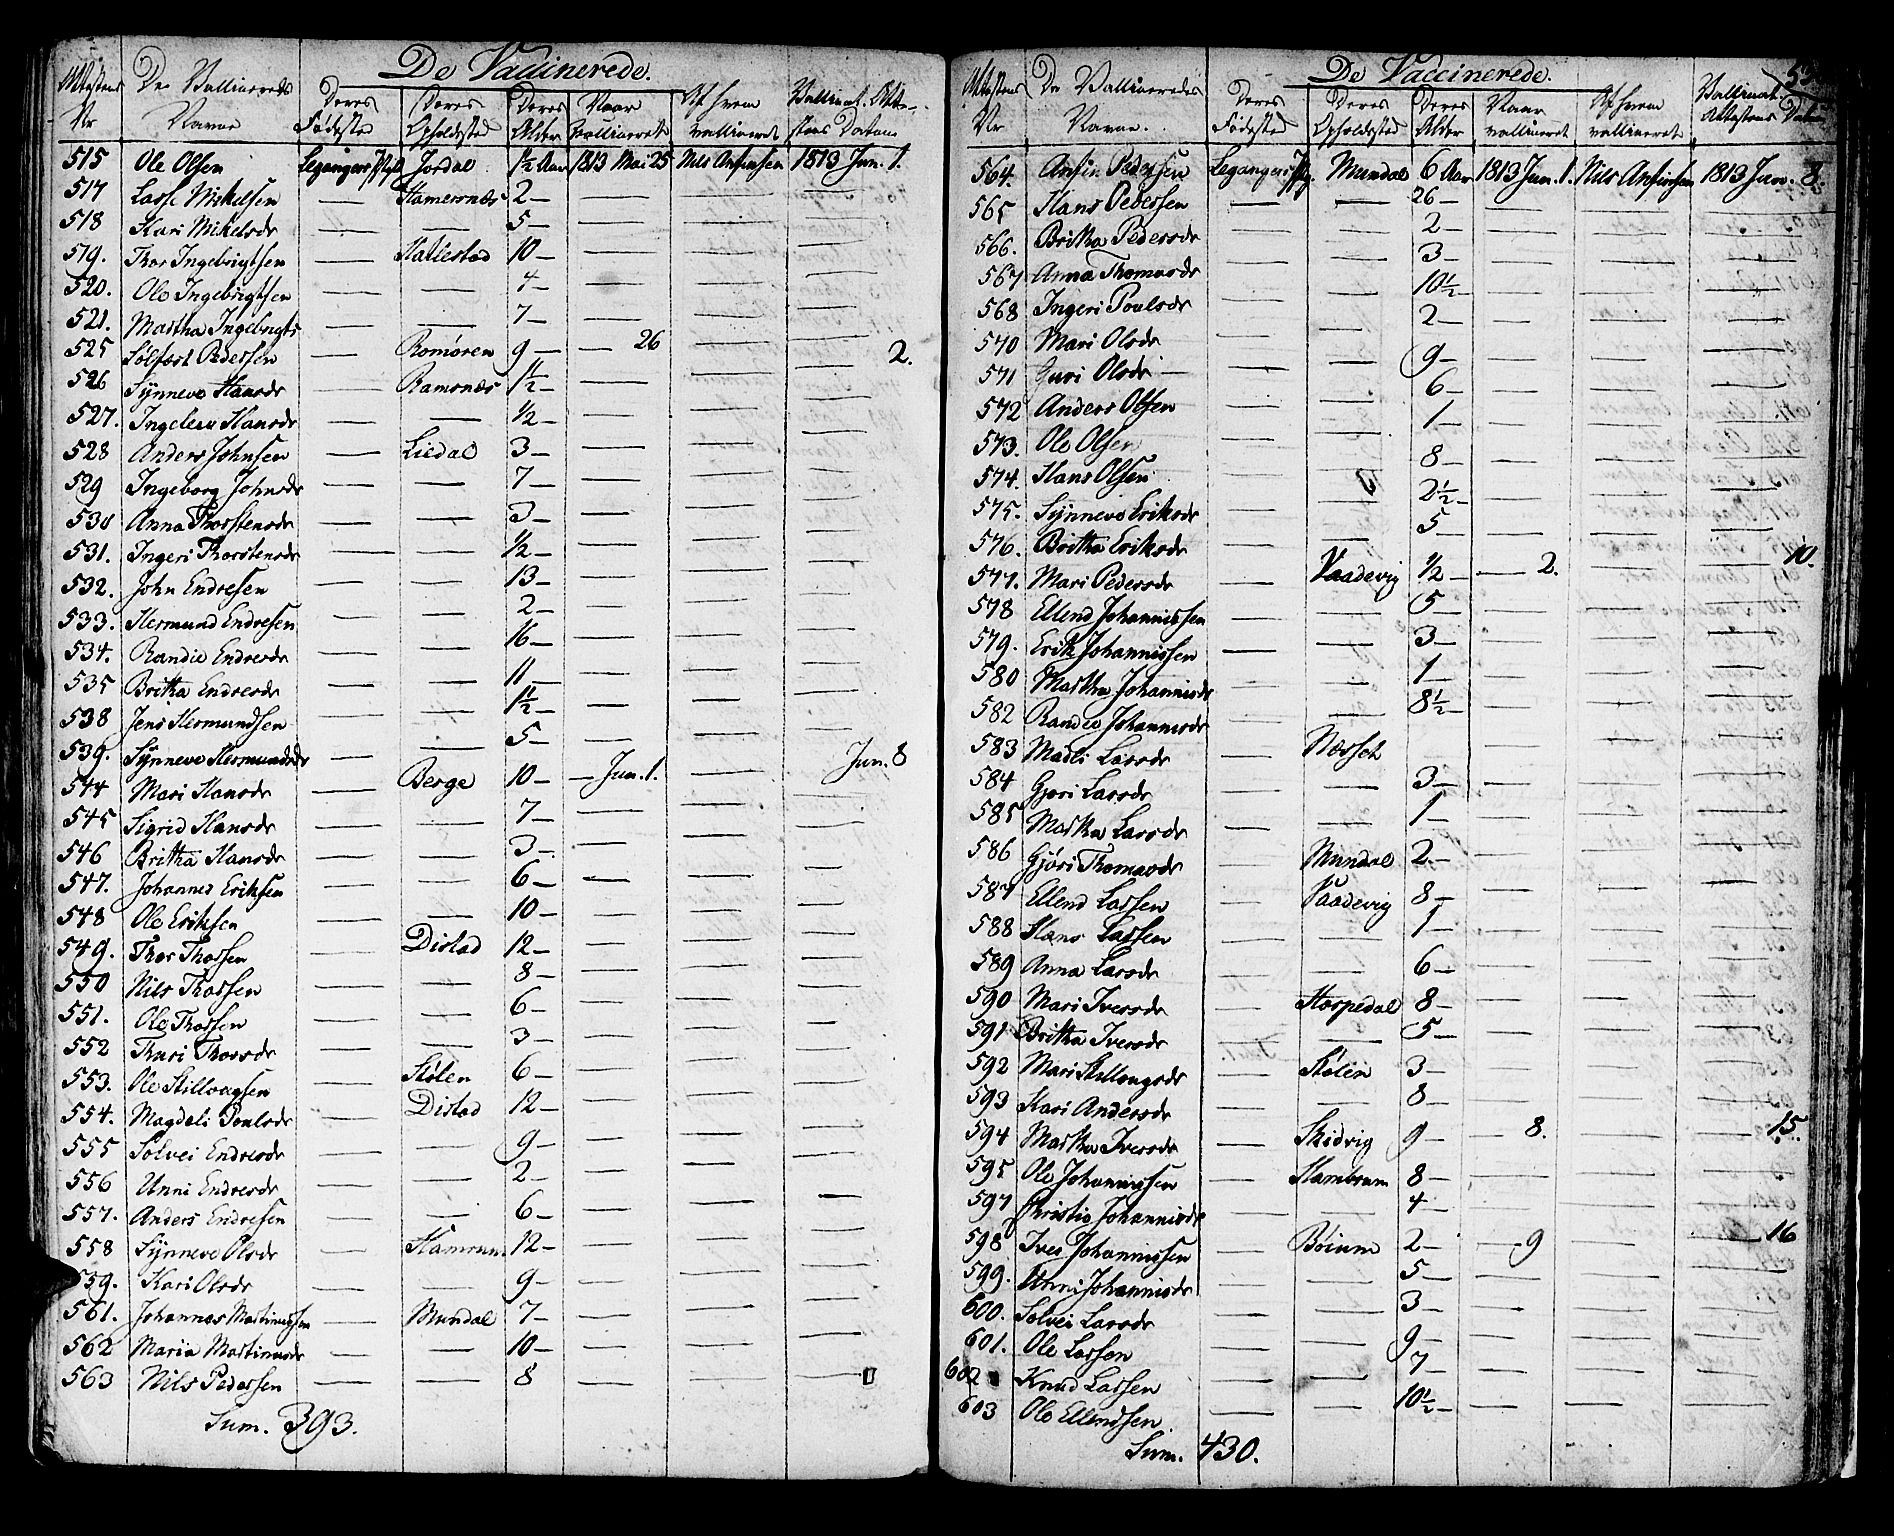 De Vaccinerede.
Attestens Nr
De Vaccineredes Navne
Deres Fødested
Deres Opholdssted
Deres Alder
Naar vaccinerede
Af hvem vaccineret
Vaccinat. Attestens Datum
515 Ole Olsen Leganger Pgld Jordal 1½ Aar 1813 Mai 25 Nils Ansinsen 1813 Jun. 1.
517 Lasse Mikelsen — Hamersnæs 2 — — — —
518 Kari Mikelsdr — — 5 — — — —
519. Thor Ingebrigtsen — Hatlestad 10 — — — —
520. Ole Ingebrigtsen — — 4 — — — —
521. Martha Ingebrigts — — 7 — — — —
525 Solfæst Pedersen — Romøren 9 — — 26 — — 2.
526 Synneve Hansdr — Ramsnæs 1½ — — — —
527. Ingeleiv Hansdr — — ½ — — — —
528 Anders Johnsen — Liedal 3 — — — —
529 Ingeborg Johnsdr — — 7 — — — —
530 Anna Thorstensdr — — 3 — — — —
531. Ingeri Thorstensdr — — ½ — — — —
532. John Endresen — — 13 — — — —
533. Hermund Endresen — — 2 — — — —
534. Randie Endresdr — — 16 — — — —
535 Britha Endresdr — — 11 — — — —
538 Jens Hermundsen — — 1½ — — — —
539. Synneve Hermundsdr — — 5 — — — —
544 Mari Hansdr — Berge 10 — — Jun. 1. — Jun. 8
545 Sigrid Hansdr — — 7 — — — —
546 Britha Hansdr — — 3 — — — —
547. Johannes Eriksen — — 6 — — — —
548 Ole Eriksen — — 10 — — — —
549. Thor Thorsen — Distad 12 — — — —
550 Nils Thorsen — — 8 — — — —
551. Ole Thorsen — — 6 — — — —
552 Thuri Thorsdr — — 3 — — — —
553. Ole Stillougsen — Stølen 6 — — — —
554. Magdeli Poulsdr — Distad 12 — — — —
555 Solvei Endresdr — — 9 — — — —
556 Unni Endresdr — — 2 — — — —
557. Anders Endresen — — 6 — — — —
558 Synneve Olsdr — Hamrum 12 — — — —
559. Kari Olsdr — — 9 — — — —
561. Johannes Martinussen — Mundal 7 — — — —
562 Maria Martinusdr — — 10 — — — —
563 Nils Pedersen — — 8 — — —
Sum. 393.
De Vaccinerede.
Attestens Nr
De Vaccineredes Navne.
Deres Fødested
Deres Opholdssted
Deres Alder
Naar vaccinerede
Af hvem vaccineret
Vaccinat. Attestens Datum
564. Ansin Pedersen Leganger Pg. Mundal 6 Aar 1813 Jun. 1. Nils Ansinsen 1813 Jun. 8.
565 Hans Pedersen — — 26 — — — —
566. Britha Pedersdr — — 2 — — — —
567 Anna Thomasdr — — 3 — — — —
568 Ingeri Poulsdr — — 10½ — — — —
570 Mari Olsdr — — 2 — — — —
571 Guri Olsdr — — 9 — — — —
572 Anders Olsen — — 6 — — — —
573. Ole Olsen — — 1 — — — —
574. Hans Olsen — — 8 — — — —
575. Synneve Eriksdr — — 2½ — — — —
576. Britha Eriksdr — — 5 — — — —
577. Mari Pedersdr — Vaadevig ½ — — 2. — 10.
578 Ellend Johannissen — — 5 — — — —
579. Erik Johannissen — — 3 — — — —
580 Martha Johannisdr — — 1 — — — —
582 Randie Johannisdr — — 8½ — — — —
583 Madli Larsdr — Næsset — — —
584 Gjori Larsdr — — 3 — — — —
585 Martha Larsdr — — 1 — — — —
586 Gjøri Thomasdr — Mundal 2 — — — —
587 Ellend Larsen — Vaadevig 8 — — — —
588 Hans Larsen — — 1 — — — —
589 Anna Larsdr — — 6 — — — —
590 Mari Iversdr — Horpedal 8 — — — —
591 Britha Iversdr — — 5 — — — —
592 Mari Stillougsdr — Stølen 3 — — — —
593 Kari Andersdr — — 8 — — — —
594 Martha Iversdr — Skidvig 9 — — 8. — 15.
595 Ole Johannissen — Hambrum 8 — — — —
597 Christie Johannisdr — — 4 — — — —
598 Iver Johannissen — Bøium 2 — — 9 — — 16
599. Unni Johannisdr — — 5 — — — —
600. Solvei Larsdr — — 3 — — — —
601. Ole Larsen — — 9 — — — —
602 Knud Larsen — — 7 — — — —
603 Ole Ellendsen — — 10½ — — — —
Sum. 430.